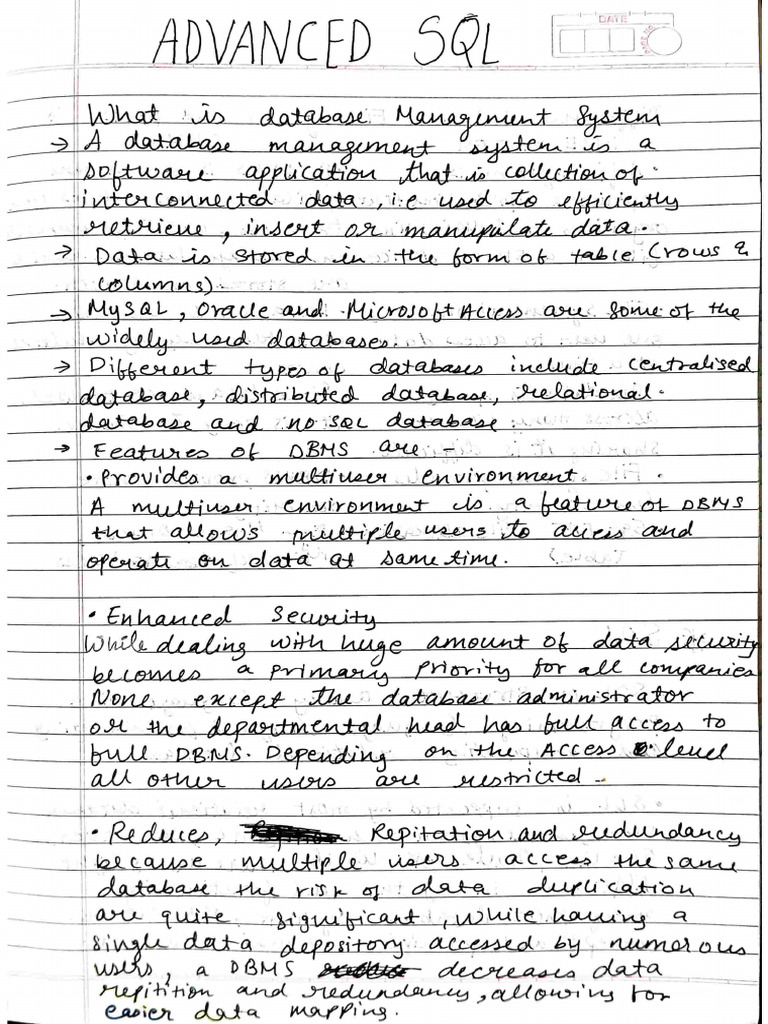 DATE
ADVANCED SQL
What is database Management System
→ A database management system is a
software application that is collection of
interconnected data, i.e used to efficiently
retrieve, insert or manupilate data.
→ Data is stored in the form of table (rows &
columns).
→ MySQL, Oracle and Microsoft Access are some of the
widely used databases.
→ Different types of databases include centralised
database, distributed database, relational
database and no SQL database.
→ Features of DBMS are -
• Provides a multiuser environment.
A multiuser environment is a feature of DBMS
that allows multiple users to access and
operate on data at same time.
• Enhanced Security
While dealing with huge amount of data security
becomes a primary priority for all companies
None except the database administrator
or the departmental head has full access to
full DBMS. Depending on the Access level
all other users are restricted -
• Reduces, Repitation and redundancy
because multiple users access the same
database the risk of data duplication
are quite significant, while having a
single data depository accessed by numerous
users, a DBMS decreases data
repitition and redundancy, allowing for
easier data mapping.